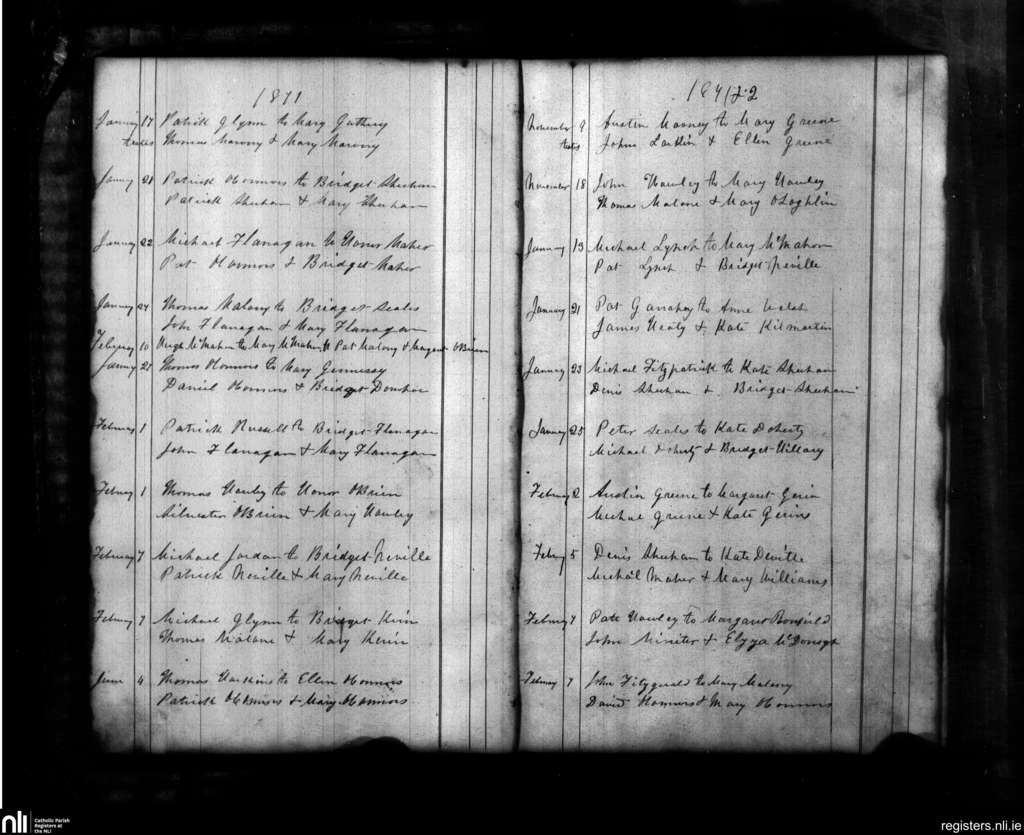 1871
January 17 Patrick Glynn to Mary
testes Thomas Marony & Mary Marony
January 21 Patrick OConnors to Bridget Sheehan
Patrick Sheehan & Mary Sheehan
January 22 Michael Flanagan to Honor Maher
Pat OConnors & Bridget Maher
January 24 Thomas Malony to Bridget Scales
John Flanagan & Mary Flanagan
February 10 Hugh McMahon to Mary McMahon Pat Malony & Margaret OBrien
January 21 Thomas OConnors to Mary
Daniel OConnors & Bridget
February 1 Patrick Russell to Bridget Flanagan
John Flanagan & Mary Flanagan
February 1 Thomas Hawley to Honor OBrien
OBrien & Mary Hawley
February 7 Michael Jordan to Bridget Neville
Patrick Neville & Mary Neville
February 7 Michael Glynn to Bridget Kerin
Thomas Malone & Mary Kerin
June 4 Thomas Harkins to Ellen OConnors
Patrick OConnors & Mary OConnors
1871/72
November 9 Austin Mooney to Mary Greene
testes John Larkin & Ellen Greene
November 18 John Hawley to Mary Hawley
Thomas Malone & Mary OLoghlin
January 13 Michael Lynch to Mary McMahon
Pat Lynch & Bridget Neville
January 21 Pat to Anne Welsh
James Heaty & Kate Kilmartin
January 23 Michael Fitzpatrick to Kate Sheehan
Denis Sheehan & Bridget Sheehan
January 25 Peter Scales to Kate Doherty
Michael Doherty & Bridget Hillary
February 2 Austin Greene to Margaret Gerin
Michael Greene & Kate Gerins
February 5 Denis Sheehan to Kate Devitte
Michael Maher & Mary Williams
February 7 Pat Hawley to Margaret Bonfield
John Miniter & Elyza McDonogh
February 7 John Fitzgerald to Mary Malony
David Connors & Mary OConnors
nli
Catholic Parish
Registers at
the NLI
registers.nli.ie